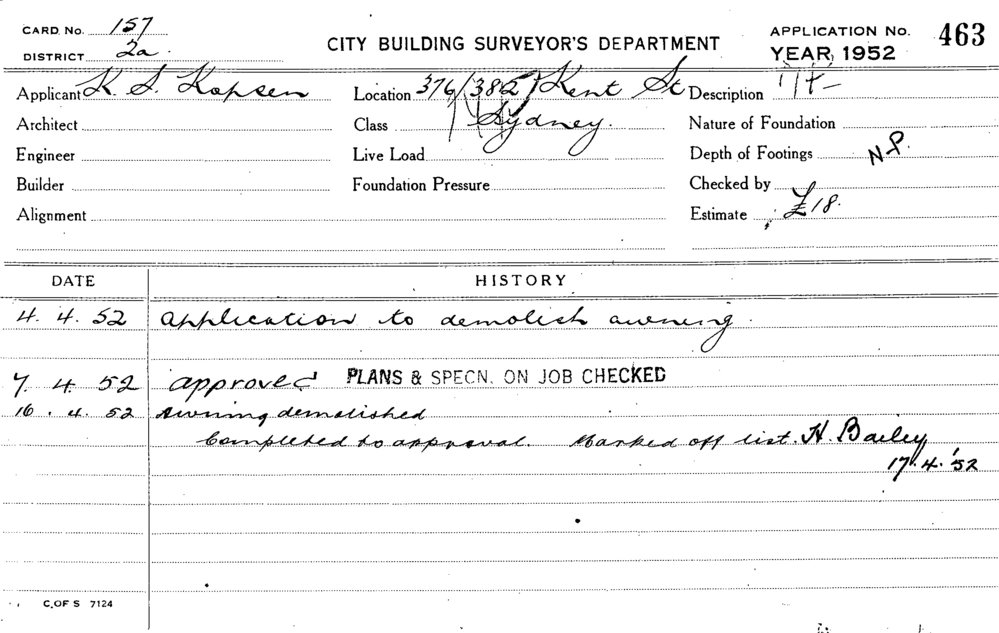 CARD No. 157
DISTRICT 2a.
CITY BUILDING SURVEYOR'S DEPARTMENT
APPLICATION No. 463
YEAR 1952
Applicant K. S. Kopsen
Location 376/382 Kent St
Description
Architect
Class Sydney.
Nature of Foundation
Engineer
Live Load
Depth of Footings N.P.
Builder
Foundation Pressure
Checked by
Alignment
Estimate £18.
DATE HISTORY
4. 4. 52 Application to demolish awning.
7. 4. 52 approved PLANS & SPECN. ON JOB CHECKED
16. 4. 52 Awning demolished
Completed to approval. Marked off list. H. Bailey
17.4.'52
C. OF S 7124